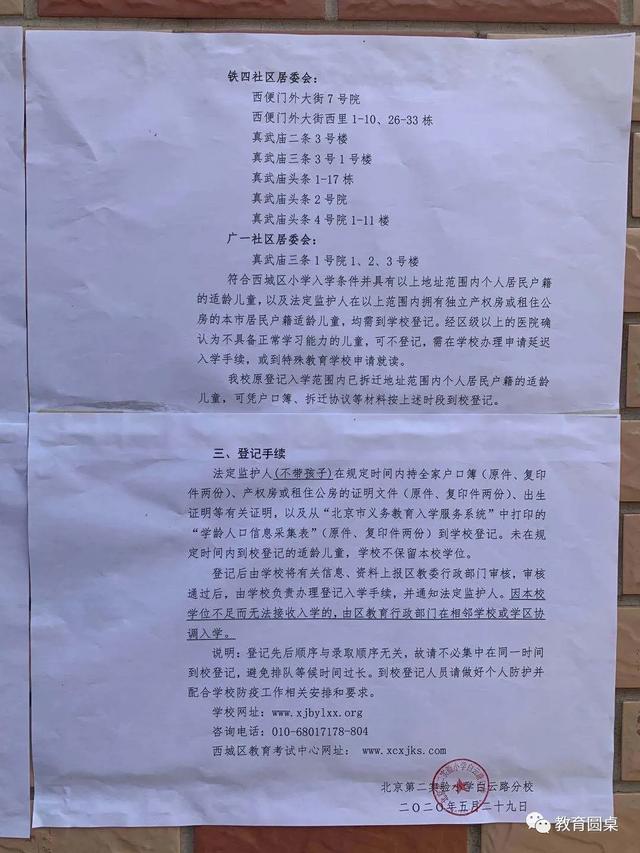 铁四社区居委会：
西便门外大街7号院
西便门外大街西里1-10、26-33栋
真武庙二条3号楼
真武庙三条3号1号楼
真武庙头条1-17栋
真武庙头条2号院
真武庙头条4号院1-11楼
广一社区居委会：
真武庙三条1号院1、2、3号楼
符合西城区小学入学条件并具有以上地址范围内个人居民户籍
的适龄儿童，以及法定监护人在以上范围内拥有独立产权房或租住公
房的本市居民户籍适龄儿童，均需到学校登记。经区级以上的医院确
认为不具备正常学习能力的儿童，可不登记，需在学校办理申请延迟
入学手续，或到特殊教育学校申请就读。
我校原登记入学范围内已拆迁地址范围内个人居民户籍的适龄
儿童，可凭户口簿、拆迁协议等材料按上述时段到校登记。
三、登记手续
法定监护人(不带孩子)在规定时间内持全家户口簿（原件、复印
件两份）、产权房或租住公房的证明文件（原件、复印件两份）、出生
证明等有关证明，以及从“北京市义务教育入学服务系统”中打印的
“学龄人口信息采集表”（原件、复印件两份）到学校登记。未在规
定时间内到校登记的适龄儿童，学校不保留本校学位。
登记后由学校将有关信息、资料上报区教委行政部门审核，审核
通过后，由学校负责办理登记入学手续，并通知法定监护人。因本校
学位不足而无法接收入学的，由区教育行政部门在相邻学校或学区协
调入学。
说明：登记先后顺序与录取顺序无关，故请不必集中在同一时间
到校登记，避免排队等候时间过长。到校登记人员请做好个人防护并
配合学校防疫工作相关安排和要求。
学校网址：www.xjbylxx.org
咨询电话：010-68017178-804
西城区教育考试中心网址： www.xcxjks.com
北京第二实验小学白云路分校
二〇二〇年五月二十九日
教育圆桌